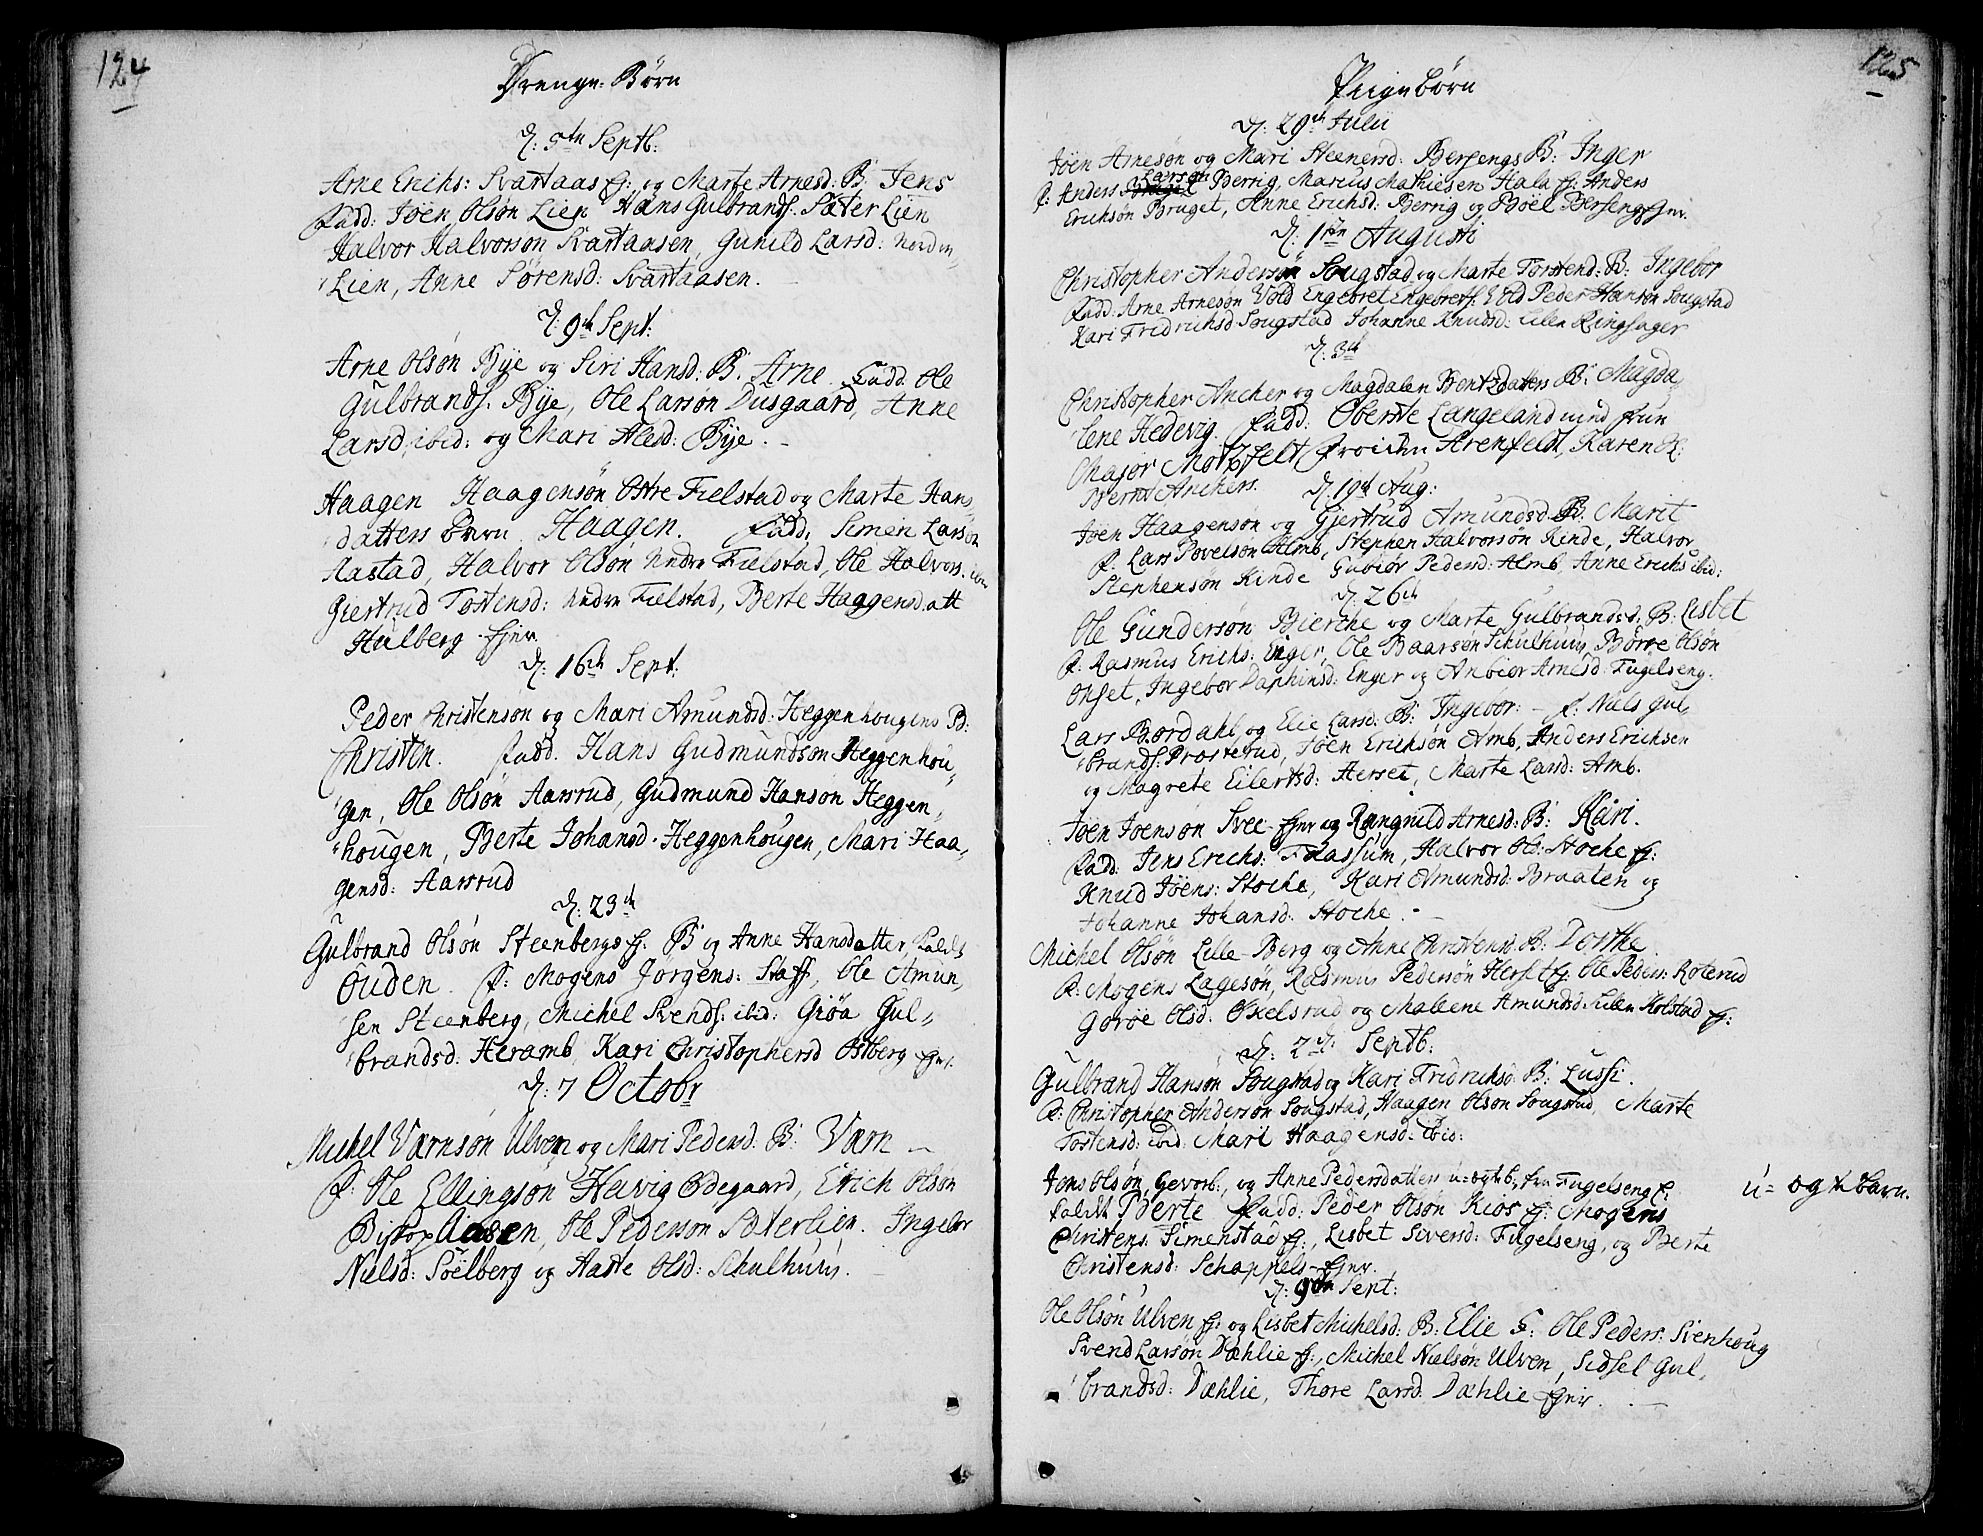 124
Drenge-Børn
d: 5te Septb:
Arne Erichs: Svartaas Ej: og Marte Arnesd: B: Jens
Fadd: Joen Olsøn Lien Hans Gulbrands: Sæter Lien
Halvor Halvorsøn Svartaasen, Gunild Larsd: Norden
Lien, Anne Sørensd: Svartaasen.
d: 9de Sept:
Arne Olsøn Bye og Siri Hansd: B: Arne. Fadd. Ole
Gulbrands: Bye, Ole Larsøn Dusgaard, Anne
Larsd, ibid: og Mari Alesd: Bye.
Haagen Haagensøn Østre Fielstad og Marte Hans
datters Børn Haagen. Fadd: Simen Larsøn
Aastad, Halvor Olsøn Nedre Fielstad, Ole Halvors. ibid
Giertrud Tostensd: Nedre Fielstad, Berte Haagensdatt
Hulberg Ejer
d: 16de Sept:
Peder Christensøn og Mari Amundsd: Heggenhougens B:
Christen. Fadd. Hans Gudmundsøn Heggenhou„
gen, Ole Olsøn Aasrud, Gudmund Hansøn Heggen„
„hougen, Berte Johansd: Heggenhougen, Mari Haa„
gensd: Aasrud
d: 23de
Gulbrand Olsøn Steenbergs Ej: B: og Anne Hansdatter, kalds
Ouden. F: Mogens Jørgens: Staff, Ole Amun„
sen Steenberg, Michel Svends: ibid: Giøa Gul„
brandsd: Heramb, Kari Christophersd Østberg Ejer.
d: 7 Octobr
Michel Værnsøn Ulven og Mari Pedersd: B: Værn
F: Ole Ellingsøn Helvig Ødegaard, Erich Olsøn
Bispop Aasen, Ole Pedersøn Sæterlien. Ingebor
Nielsd: Soelberg og Marte Olsd: Schulhuus.
125
Piigebørn
d: 29de Julii
Joen Arnesøn og Mari Steenersd: Bersengs B: Inger
F: Anders Larsøn Berrig, Marius Mathiesen Hala Ej: Anders
Erichsøn Bruget, Anne Erichsd: Berrig og Boel Berseng Ejer.
d: 1ste Augusti
Christopher Andersøn Sougstad og Marte Tostend: B: Ingebor
Fadd: Arne Arnesøn Vold Engebret Engebrets: Vold Peder Hansøn Sougstad
Kari Fridrichsd Sougstad Johanne Knudsd: Lilen Ringsager
d: 3de
Christopher Ancher og Magdalen Bentzdatters B: Magda„
lene Hedevig. Fadd: Oberste Langeland med frue
Major Motzfelt Frøiken Arenfeldt, Karen Sl:
Bernt Anchers. d: 19de Aug:
Joen Haagensøn og Gjertrud Amundsd B: Marit
F: Lars Povelsøn Almb, Stephen Halvorsøn Kinde, Halvor
Stephensøn Kinde Gubiør Pedersd: Almb, Anne Erichs ibid:
d: 26de
Ole Gundersøn Bierche og Marte Gulbrandsd: B: Lisbet
F: Rasmus Erichs: Enger, Ole Baarsøn Schulhuus, Børre Olsøn
Onset, Ingebor Daphinsd: Enger og Anbiør Arnesd: Fugelseng.
Lars Bordahl og Elie Larsd: B: Ingebor: – F: Niels Gul„
brands: Prosterud, Joen Erichsøn Amb, Anders Erichsen
og Magrete Eilertsd: Herset, Marte Larsd: Amb.
Joen Joensøn Svee Ejer og Rangnild Arnesd: B: Kari.
Fadd: Jens Erichs: Flassum, Halvor Ol: Stoche Ej:
Knud Joens: Stoche, Kari Amundsd: Braaten og
Johanne Johansd: Stoche.
Michel Olsøn Lille-Berg og Anne Christensd. B: Dorthe
F: Mogens Lagesøn, Rasmus Pedersøn Herset Ej: Ole Peders: Roterud
Goroe Olsd: Oxelsrud og Malene Amundsd: Lilen Kolstad Ej:
d: 2de Septb:
Gulbrand Hansøn Sougstad og Kari Fridrichsd: B: Lussi.
F: Christopher Andersøn Sougstad, Haagen Olsøn Sougstad, Marte
Tostensd: ibid: Mari Haagensd: ibid:
Jens Olsøn Gevorb:, og Anne Pedersdatters u-ægte b: fra Fugelseng E:
kaldt Berte Fadd: Peder Olsøn Kios Ej: Mogens
Christens: Simenstad Ej:, Lisbet Siversd: Fugelseng, og Berte
Christensd: Schappels-Ejer.
u- ægte barn.
d: 9de Sept:
Ole Olsøn Ulven Ej: og Lisbet Michelsd: B: Elie F: Ole Peders: Svenhoug
Svend Larsøn Dæhlie Ej:, Michel Nielsøn Ulven, Sidsel Gul„
brandsd: Dæhlie, Thore Larsd. Dæhlie Ejer.